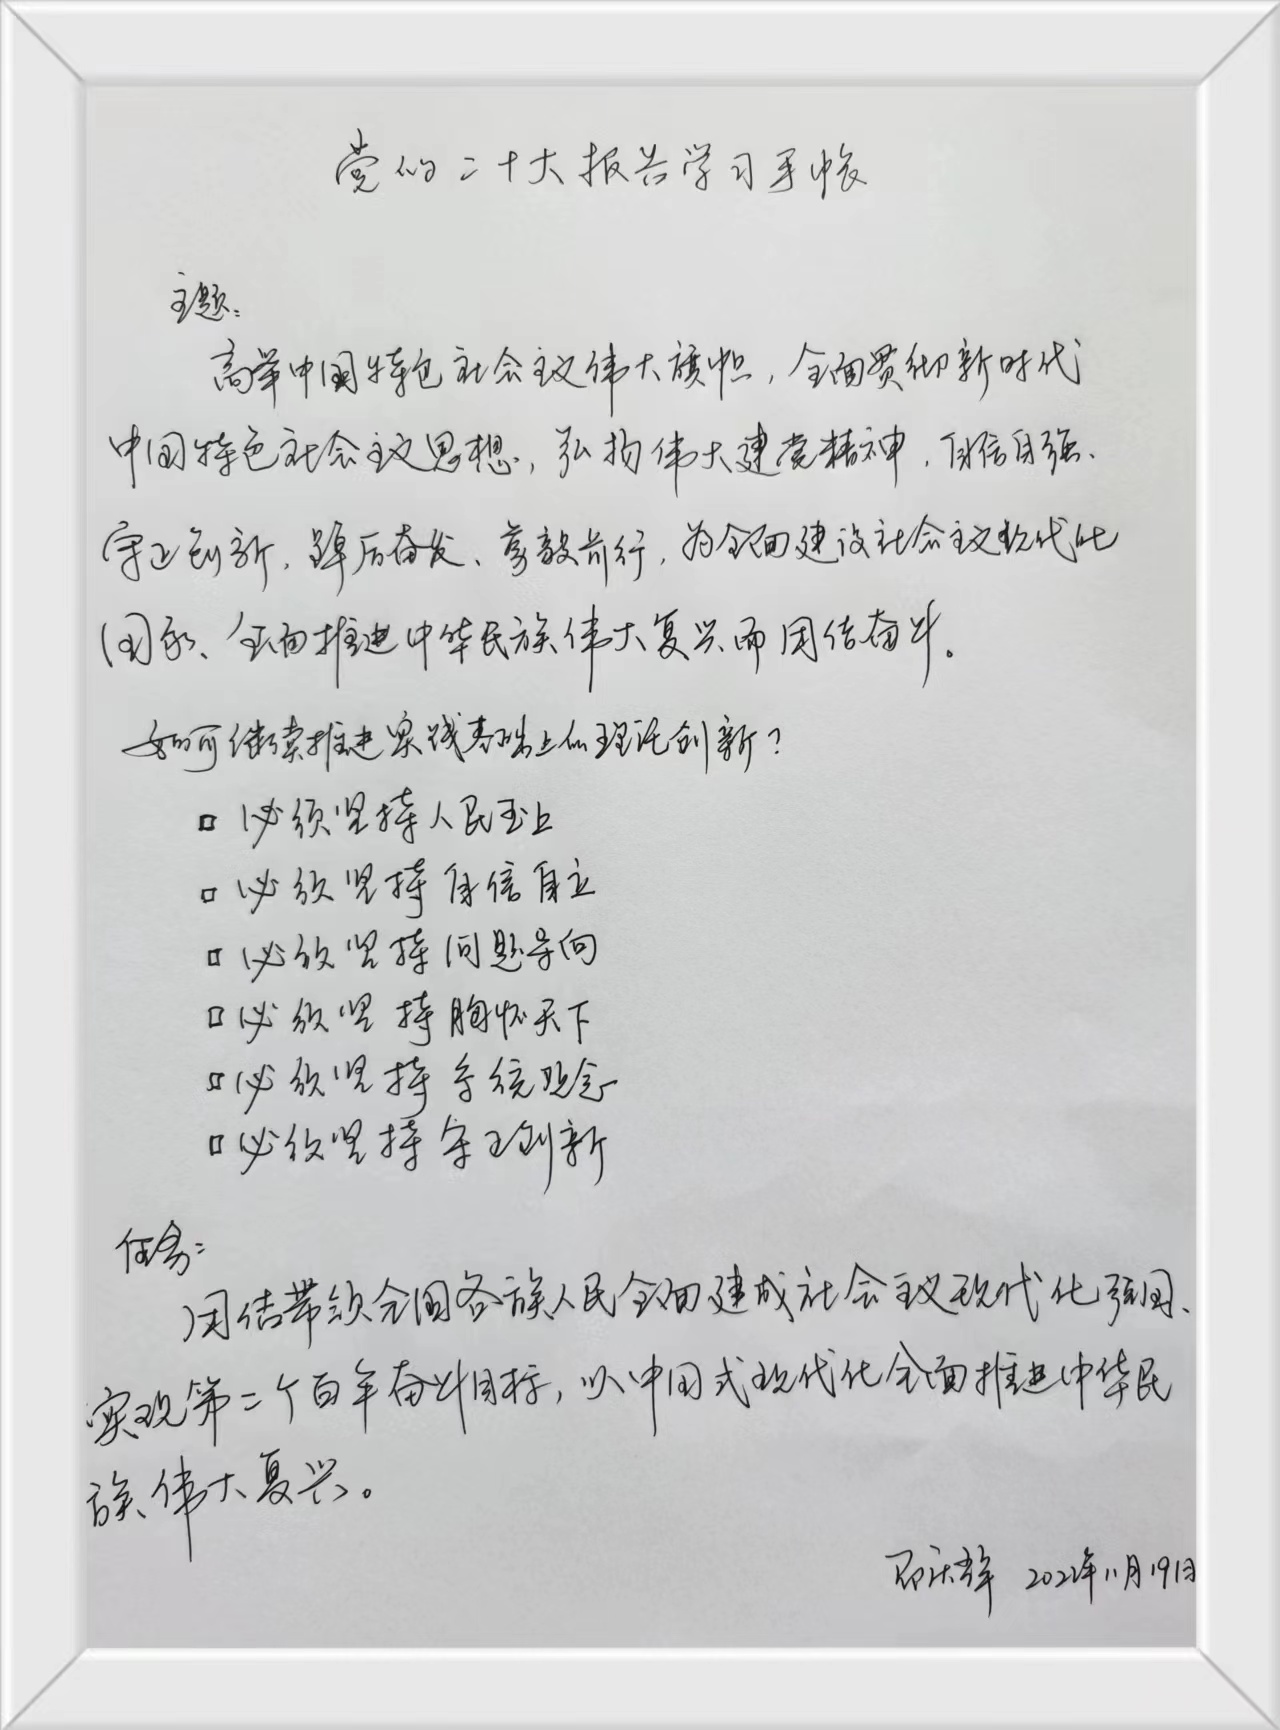 党的二十大报告学习手帐
主题:
高举中国特色社会主义伟大旗帜,全面贯彻新时代
中国特色社会主义思想,弘扬伟大建党精神,自信自强、
守正创新,踔厉奋发、勇毅前行,为全面建设社会主义现代化
国家、全面推进中华民族伟大复兴而团结奋斗。
如何继续推进实践基础上的理论创新?
必须坚持人民至上
必须坚持自信自立
必须坚持问题导向
必须坚持胸怀天下
必须坚持系统观念
必须坚持守正创新
任务:
团结带领全国各族人民全面建成社会主义现代化强国、
实现第二个百年奋斗目标,以中国式现代化全面推进中华民
族伟大复兴。
2022年11月19日